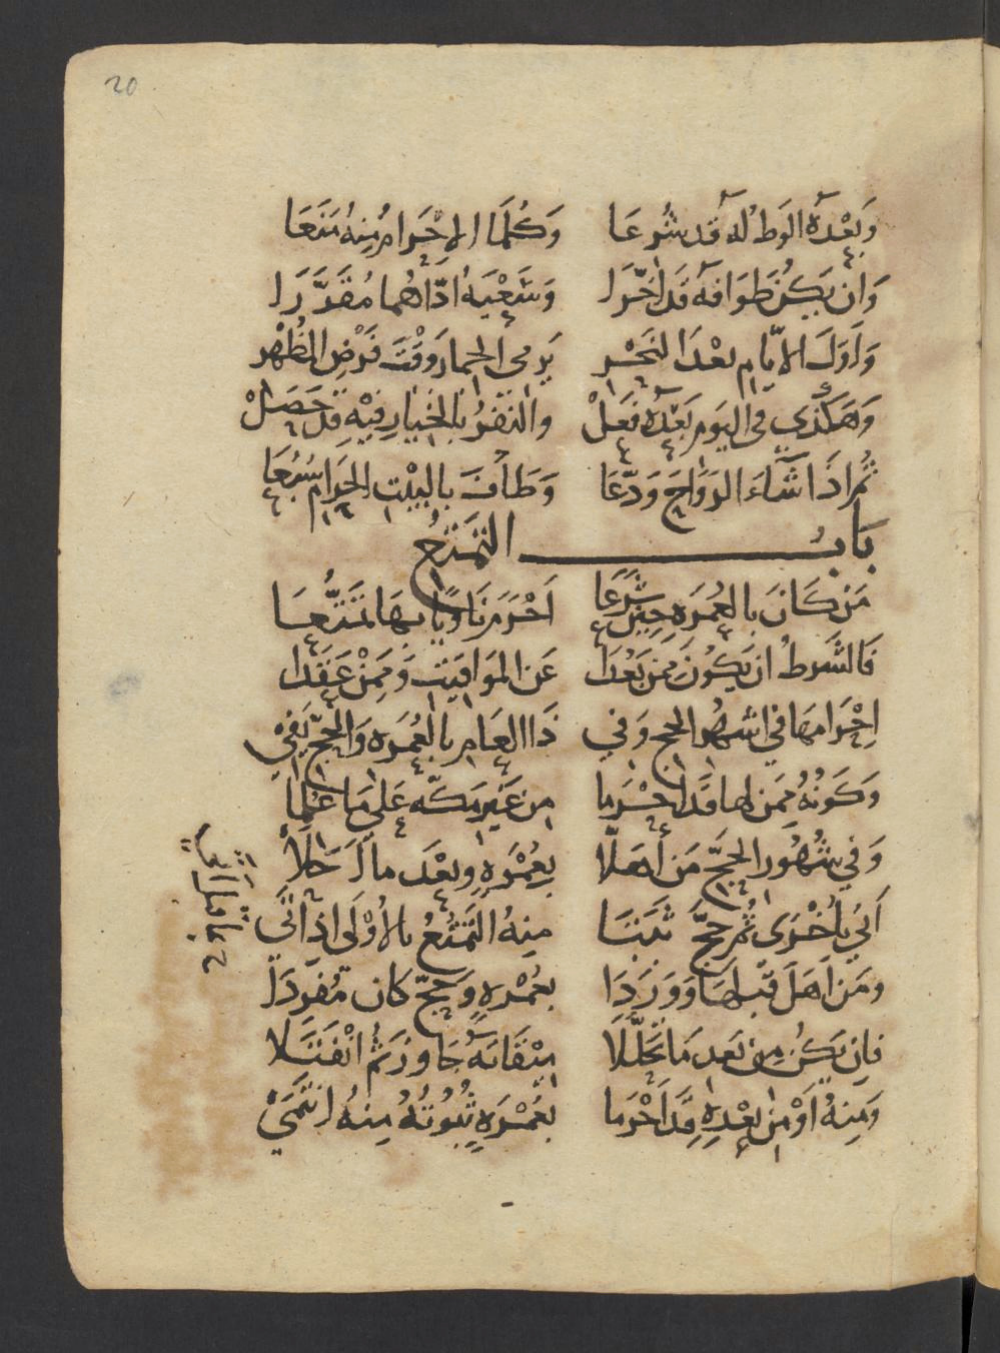 20
وَبَعْدَهُ الوَطءُ لَهُ قَد شُرِعَا وَكُلَّمَا الاِحْرَامُ مِنهُ مَنَعَا
وَاِن يَكُن طَوَافهُ قَد اَخّرَا وَسَعْيَهُ ادّاهُما مُقَرَّرَا
وَاَوّلَ الايّامِ بعْدَ النَحْرِ يَرمي الجمارَ وَقْتَ فَرْضِ الظُهْرِ
وَهَكَذي في اليَومِ بَعْدَهُ فَعَلْ والنفرُ بالخِيارِ فِيْهِ قد حَصَلْ
ثُمّ اذَا شَاءَ الرَوَاحَ وَدّعَا وَطَافَ بالبيْتِ الحَرامِ سُبُعَا
بَابُ التَمَتُّعِ
مَن كَانَ بالعُمرَهِ حِينَ شَرَعَا اَحْرَمَ نَاوِيًا بهَا تَمَتُّعَا
فَالشَرطُ ان يَكُونَ مِمَن بَعُدَا عَنِ المَوَاقِيتِ وَمِمَّنْ عَقَدَا
اِحْرَامهَا في اشهُرِ الحجِ وَفي ذَا العَامِ بالعُمرَهِ وَالحَجّ يَفِيْ
وَكَونُهُ مِمَن لها قَد اَحْرَمَا مِن غَيرِ مَكّه عَلى مَا عُلِمَا
وَفي شُهُورِ الحَجّ مَن اَهَلّا بِعُمْرَهٍ وبعْدَ مالَهَا حَلّا
اَتَي بأخْرَى ثُمَّ حَجَّ ثَبَتَا مِنهُ التَمَتُّعُ بالأوْلَى اذ اَتَى
ومَن اَهَلَ قَبْلهَا وَوَرَدَا بعُمْرهٍ وَحَجّ كانَ مُفرِدَا
فاِن يَكُن مِن بَعدِ مَا تَحَلّلَا مِيْقَاتَهُ جَاوزَ ثُم انْفَتَلَا
وَمِنهُ اَوْ مِن بعْدِهِ قَد اَحْرَمَا بعُمْرَهٍ ثُبُوتُهُ مِنهُ انتَمَىْ